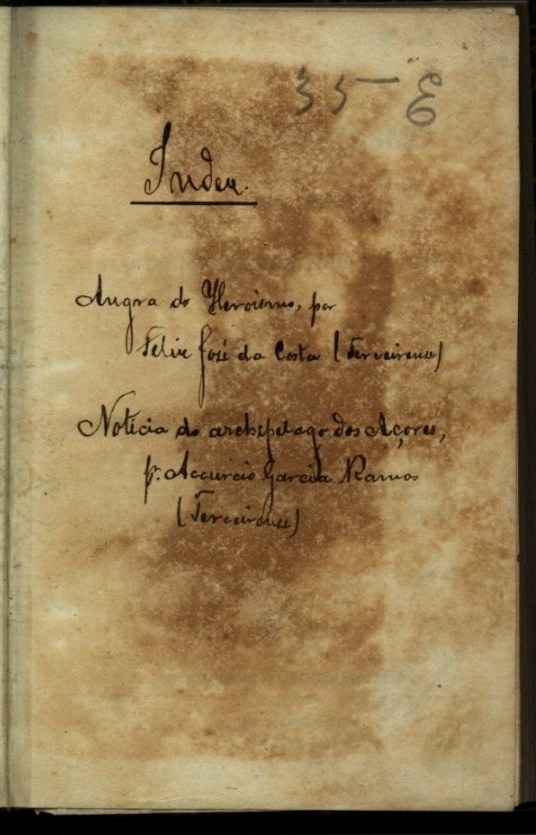 35-E
Index.
Angra do Heroismo, por
Felix José da Costa (Terceirense)
Noticia do archipelago dos Açores,
p. Accurcio Garcia Ramos
(Terceirense)